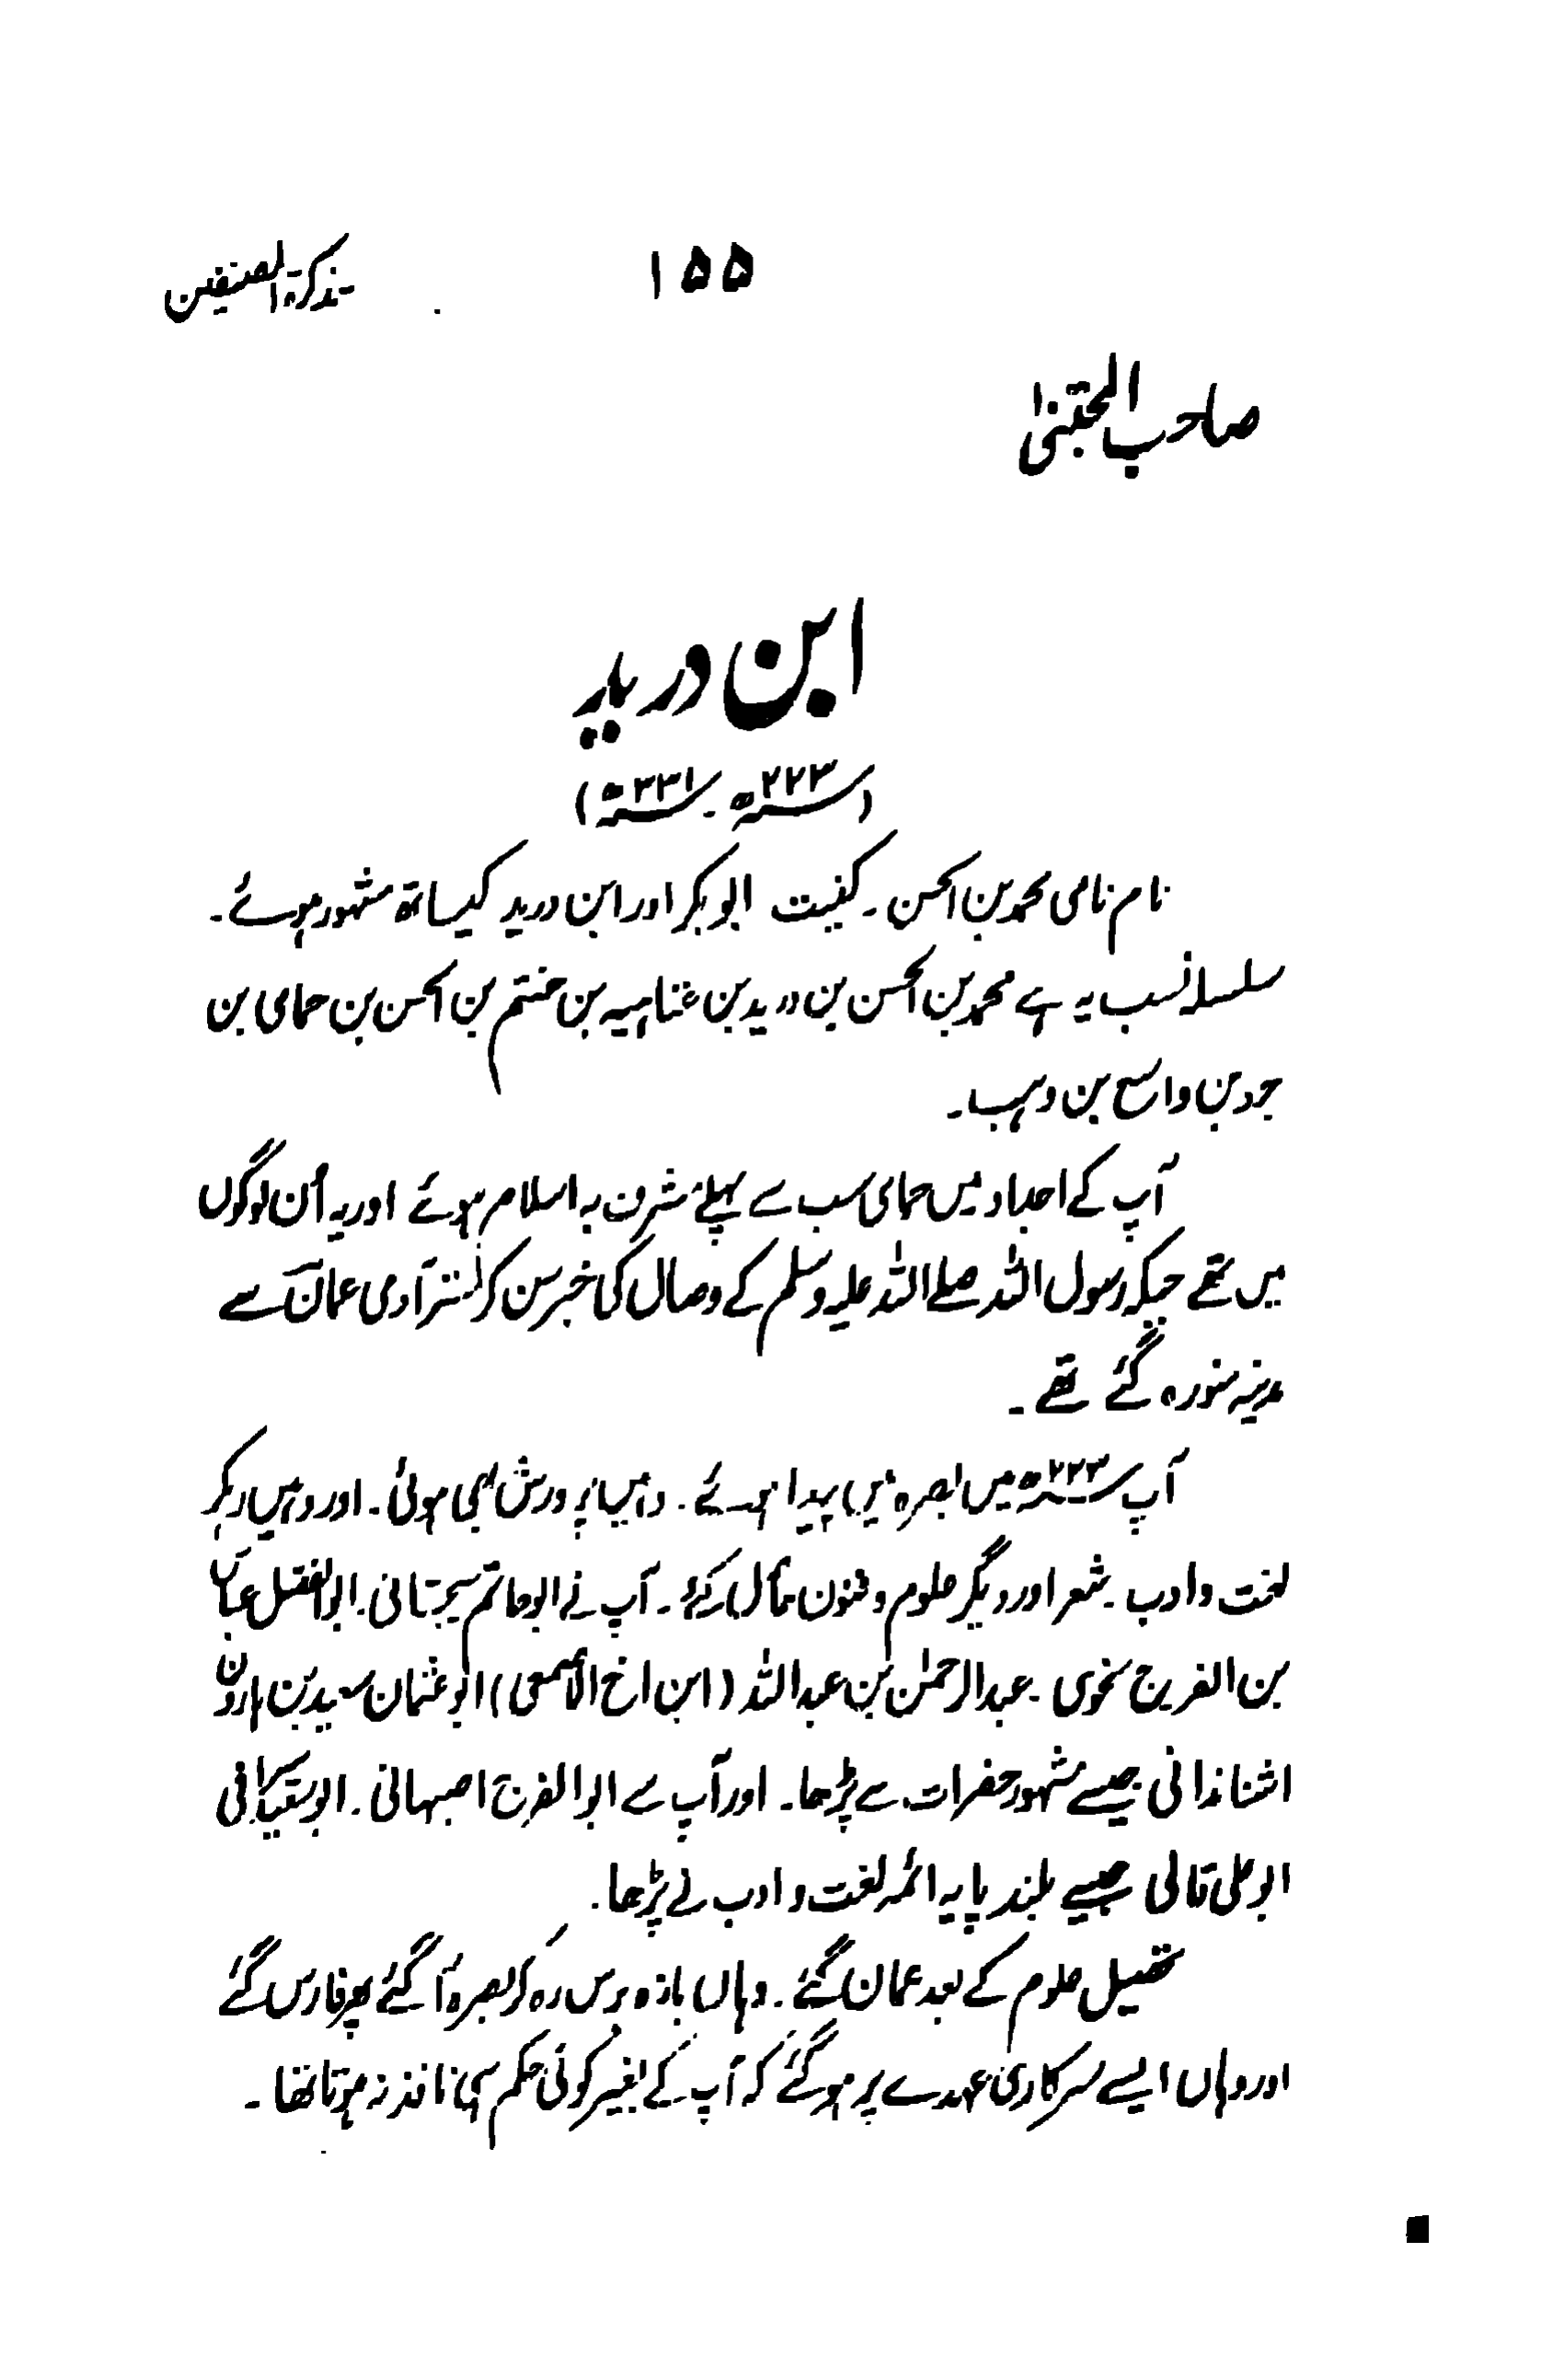 تذکرۃ المصنفین ۱۵۵
صاحب المجتنیٰ
ابن درید
(سنہ ۲۲۳ھ ۔ سنہ ۳۳۱ھ)
نام نامی محمد بن الحسن ۔ کنیت ابو بکر اور ابن درید کیساتھ مشہور ہوئے ۔
سلسلہ نسب یہ ہے محمد بن الحسن بن درید بن عتاہیہ بن ختم بن الحسن بن حمامی بن
جرد بن واسع بن وہب ۔
آپ کے اجداد میں حمامی سب سے پہلے مشرف بہ اسلام ہوئے اور یہ اُن لوگوں
میں تھے جبکہ رسول اللہ صلے اللہ علیہ وسلم کے وصال کی خبر سن کر ستر آدمی عمان سے
مدینہ منورہ گئے تھے ۔
آپ سنہ ۲۲۳ھ میں بصرہ میں پیدا ہوئے ۔ وہیں پر ورش بھی ہوئی ۔ اور وہیں رہکر
لغت و ادب ۔ شعر اور دیگر علوم و فنون حاصل کئے ۔ آپ نے ابو حاتم سجستانی ۔ ابو الفضل عباس
بن الفرج نحوی ۔ عبدالرحمٰن بن عبداللہ (ابن اخ الأصمعی) ابو عثمان سعید بن ہارون
اشناندانی جیسے مشہور حضرات سے پڑھا ۔ اور آپ سے ابو الفرج اصبہانی ۔ ابو سعید سیرافی
ابو علی قالی جیسے بلند پایہ ائمہ لغت و ادب نے پڑھا ۔
تحصیل علوم کے بعد عمان گئے ۔ وہاں بارہ برس رہ کر بصرہ آ گئے پھر فارس گئے
اور وہاں ایسے سرکاری عہدے پر ہو گئے کہ آپ کے بغیر کوئی حکم ہی نافذ نہ ہوتا تھا ۔